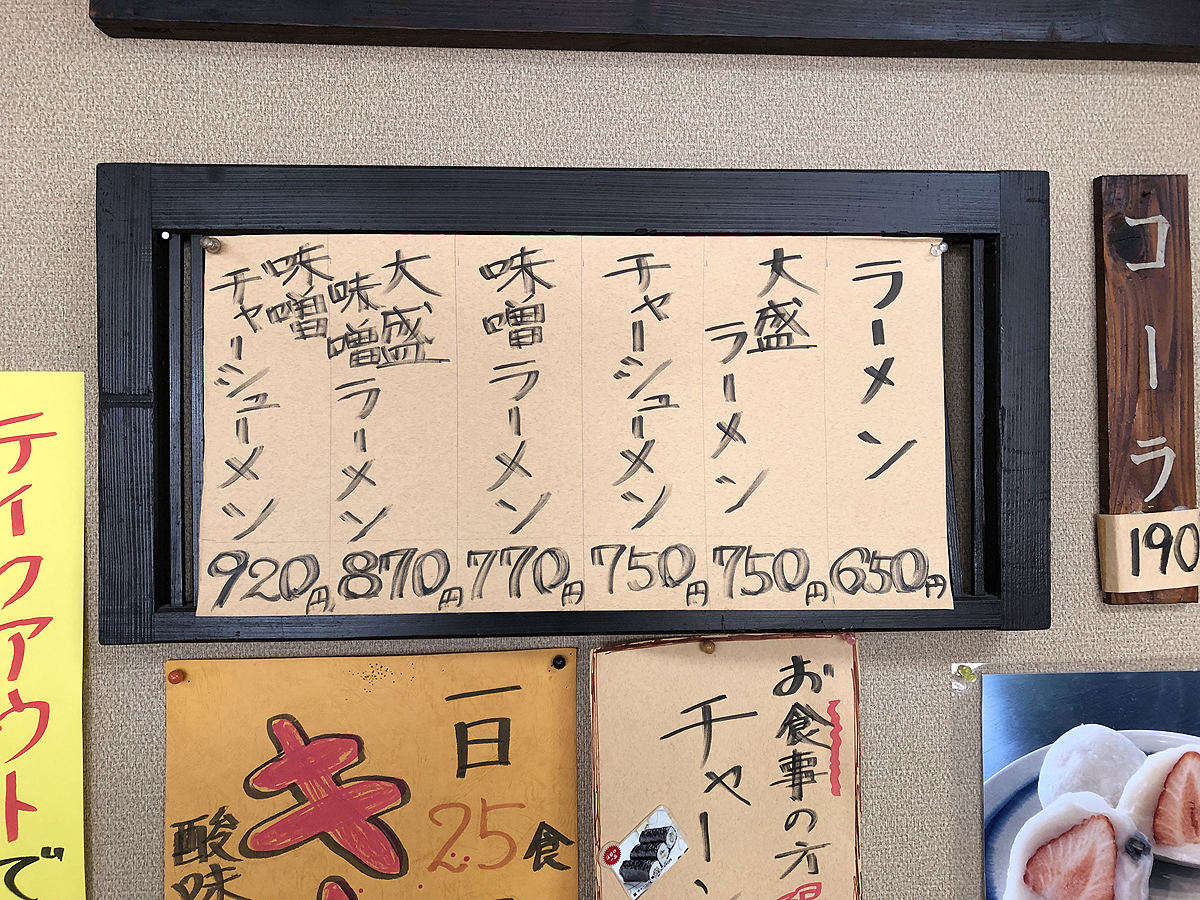 ラーメン
650円
大盛
ラーメン
750円
チャーシューメン
750円
味噌ラーメン
770円
大盛
味噌ラーメン
870円
味噌
チャーシューメン
920円
コーラ
190
テイクアウトで
一日
25食
酸味
お食事の方
チャー